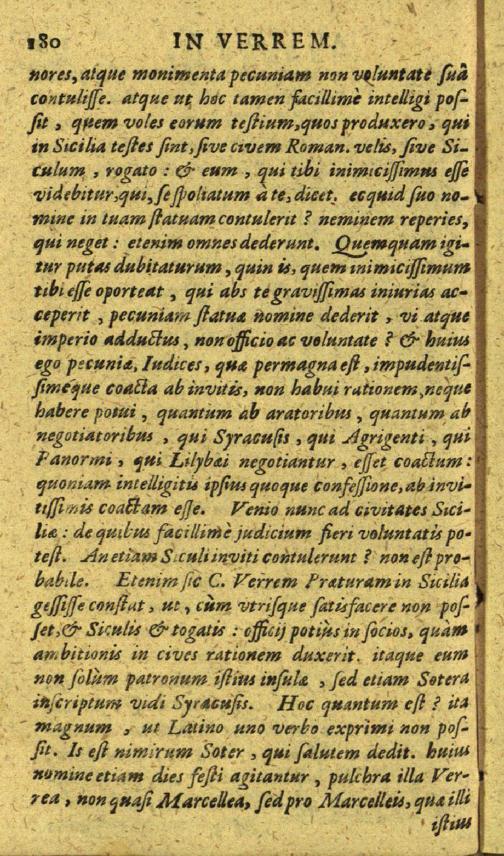 180 IN VERREM.
nores, atque monimenta pecuniam non voluntate suâ
contulisse. atque ut hoc tamen facillimè intelligi pos-
sit, quem voles eorum testium, quos produxero, qui
in Sicilia testes sint, sive civem Roman. velis, sive Si-
culum, rogato: & eum, qui tibi inimicissimus esse
videbitur, qui, se spoliatum à te, dicet. ecquid suo no-
mine in tuam statuam contulerit? neminem reperies,
qui neget: etenim omnes dederunt. Quemquam igi-
tur putas dubitaturum, quin is, quem inimicissimum
tibi esse oporteat, qui abs te gravissimas iniurias ac-
ceperit, pecuniam statuæ nomine dederit, vi atque
imperio adductus, non officio ac voluntate? & huius
ego pecuniæ, Iudices, quæ permagna est, impudentis-
simeque coacta ab invitis, non habui rationem, neque
habere potui, quantum ab aratoribus, quantum ab
negotiatoribus, qui Syracusis, qui Agrigenti, qui
Panormi, qui Lilybæi negotiantur, esset coactum:
quoniam intelligitis ipsius quoque confessione, ab invi-
tissimis coactam esse. Venio nunc ad civitates Sici-
liæ: de quibus facillimè judicium fieri voluntatis po-
test. An etiam Siculi inviti contulerunt? non est pro-
babile. Etenim sic C. Verrem Præturam in Sicilia
gessisse constat, ut, cùm vtrisque satisfacere non pos-
set, & Siculis & togatis: officij potiùs in socios, quàm
ambitionis in cives rationem duxerit. itaque eum
non solùm patronum istius insulæ, sed etiam Sotera
inscriptum vidi Syracusis. Hoc quantum est? ita
magnum, ut Latino uno verbo exprimi non pos-
sit. Is est nimirum Soter, qui salutem dedit. huius
nomine etiam dies festi agitantur, pulchra illa Ver-
rea, non quasi Marcellea, sed pro Marcelleis, quæ illi
istius